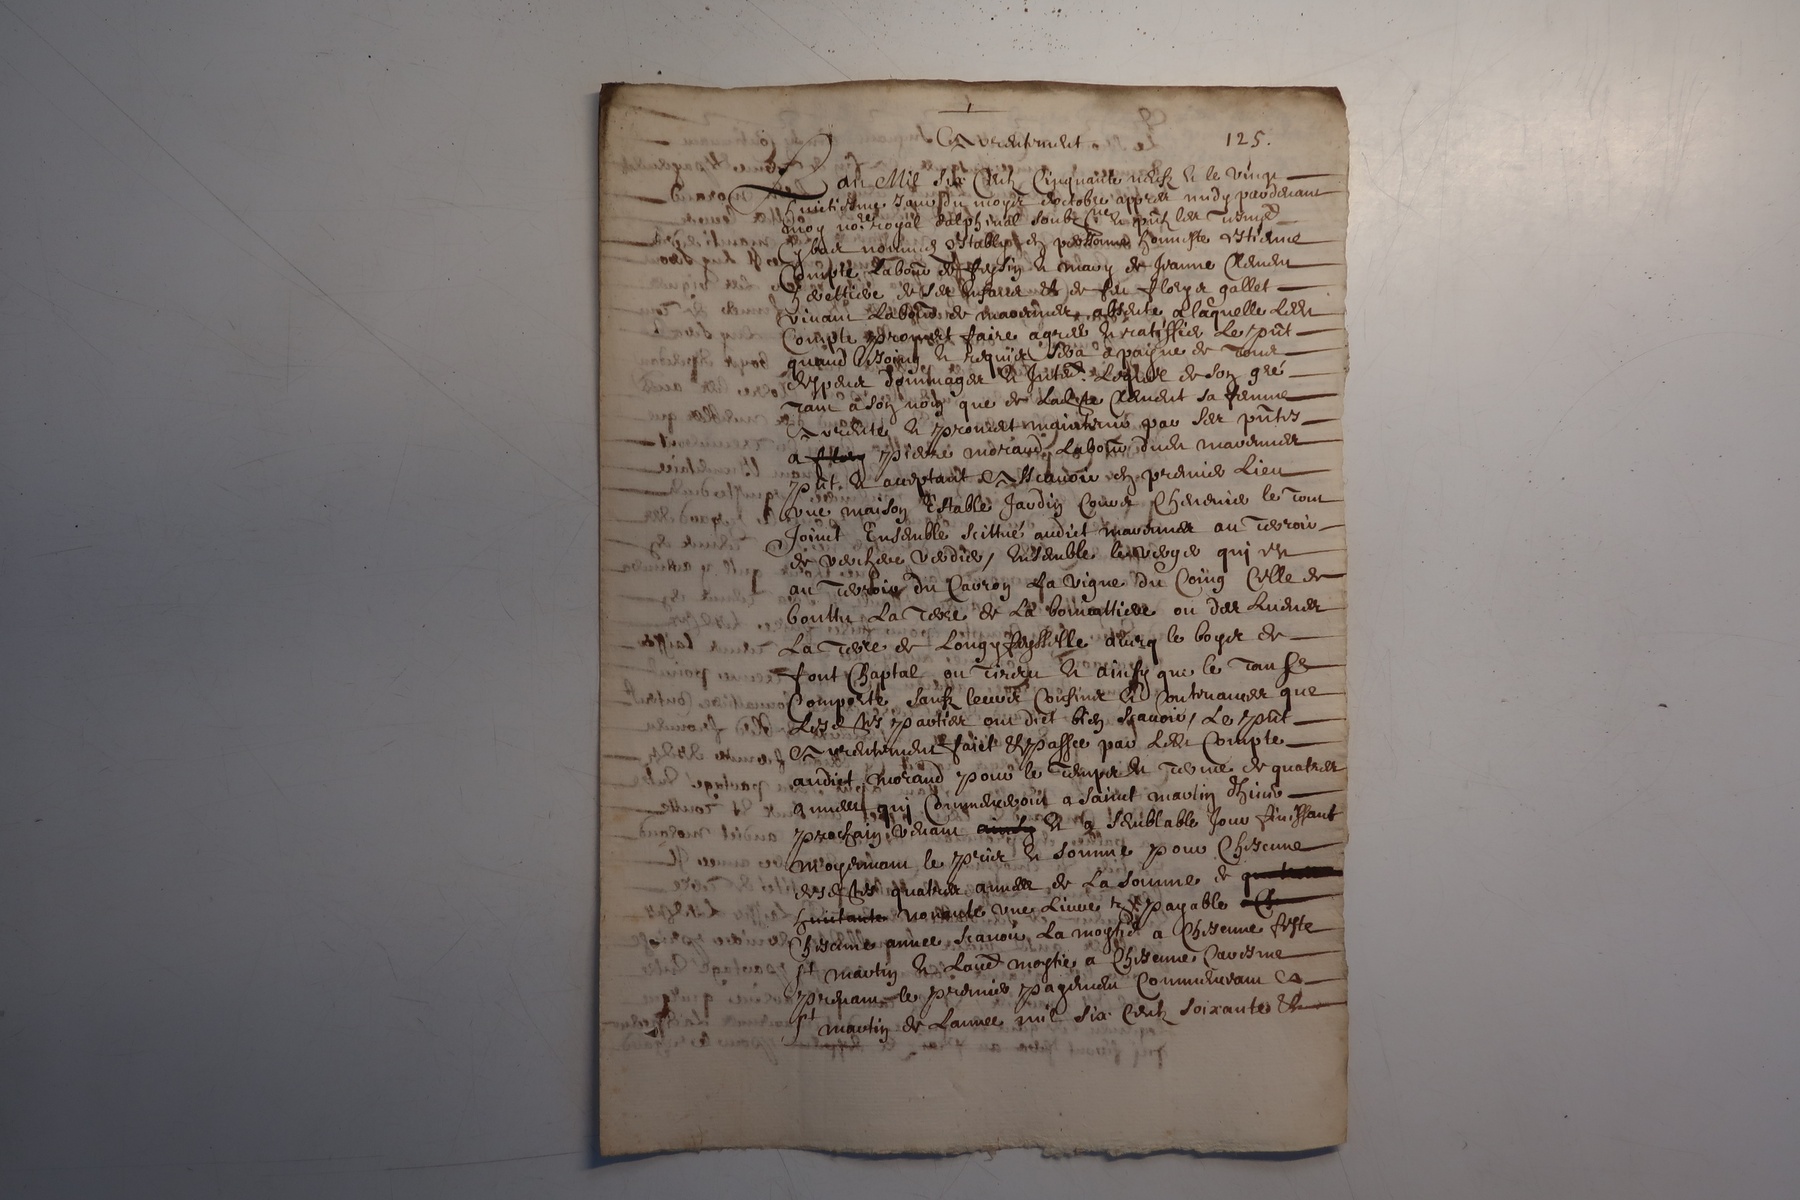 Arrentement. 125.
L'an Mil six Centz Cinquante neufz & le vingt
huictiesme Jour du moys doctobre appres midy pardevant
moy no.re royal dalphinal soubz.ne & pntz les tesmgs
Cy bas nommes estably en personne honneste estienne
Compte Labour de feysin & mary de Jeanne Clement
heretiere de ses enfans et de feu floryt gallet
vivant Labour de marennes, absente a laquelle Ledt
Compte promet faire agreer & ratiffier Le pnt
quand besoing & requis sera a payne de tous
despens dommages & Intes. Lequel de son gre
tant a son nom que de Ladte Clement sa femme
Arrente & promet maintenir par ses pntes
a pierre morand Labour dudt marennes
pnt & aceptant Assavoir en premier Lieu
une maison Estable Jardin Cour Chenevier le tout
Joinct Ensemble scittué audict marennes au terroir
de verdier, Ensemble le verger qui est
au terroir du Cavron La vigne du Coing Celle de
bouttu La terre de La ou des
La terre de avecq le boyer de
font Chaptal ou et ainsy que le tout se
Comporte sauf leurs Confins & Contenances que
Lesdtes parties ont dict bien scavoir, Le pnt
Arrentement faict & passee par Ledt Compte
audict morand pour le temps & terme de quatres
annees qui Commenceront a Sainct martin dhiver
prochain venant ainsy & a semblable Jour finissant
moyennant le prix & somme pour Chescune
desdtes quatres annees de La somme de
huictante nonante une Livre payable
Chescune annee scavoir La moytié a Chescune feste
St martin & Laud moytie a Chescune Caresme
prenant le premier payement Commencant a
St martin de Lannee mil six Centz soixante &